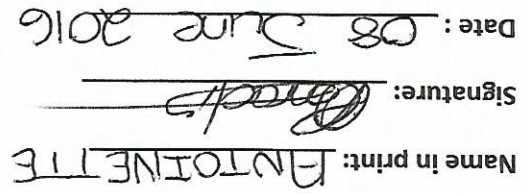 Name in print: ANTOINETTE
Signature:
Date : 08 June 2016